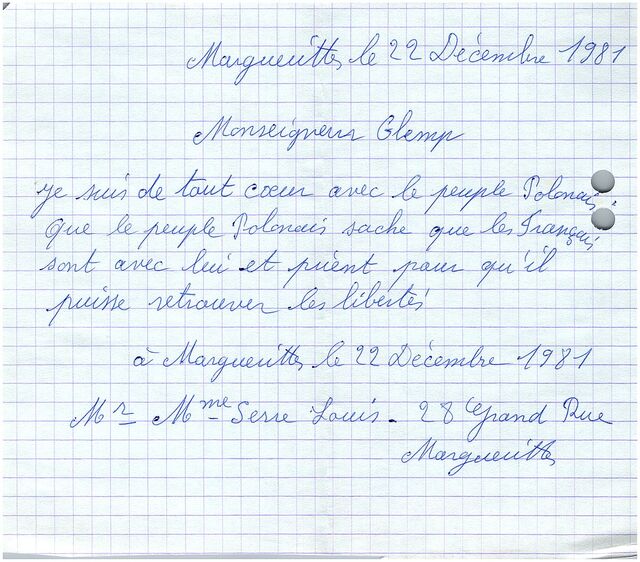 Marguerittes le 22 Décembre 1981
Monseigneur Glemp
Je suis de tout cœur avec le peuple Polonais.
Que le peuple Polonais sache que les Français
sont avec lui et prient pour qu'il
puisse retrouver les libertés
à Marguerittes le 22 Décembre 1981
Mr - Mme Serre Louis - 28 Grand Rue
Marguerittes